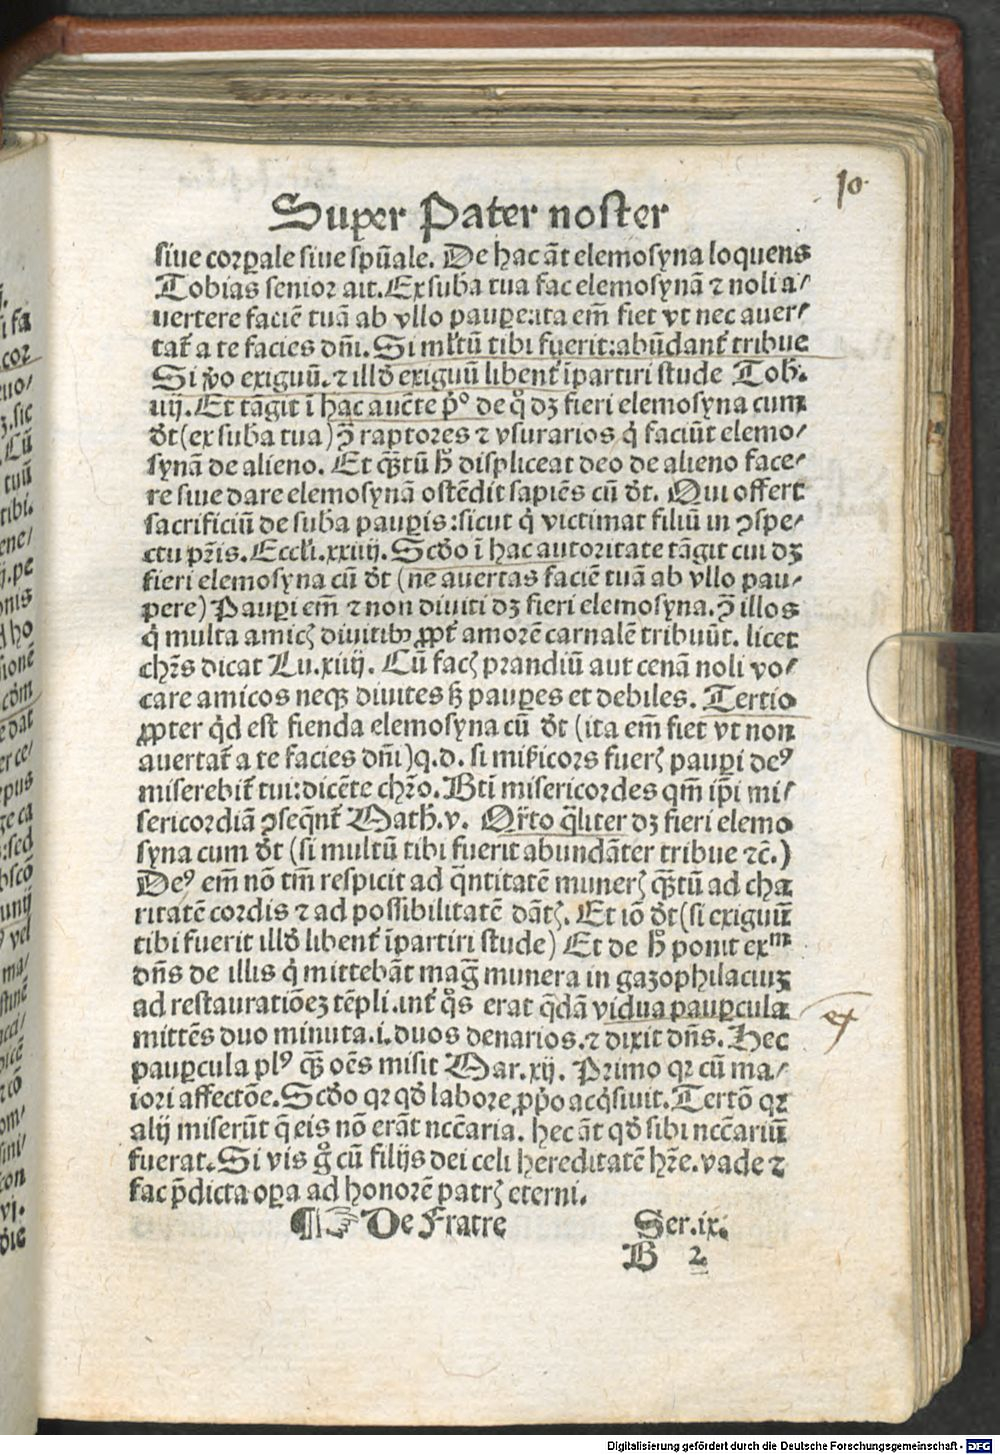 10.
Super Pater noster
siue corꝑale siue spūale. De hac āt elemosyna loquens
Tobias senior ait. Ex suba tua fac elemosynā ⁊ noli a/
uertere faciē tuā ab vllo pauꝑe: ita em̄ fiet vt nec auer/
tat̄ a te facies dn̄i. Si ml̄tū tibi fuerit: abūdant̄ tribue
Si ꝟo exiguū. ⁊ illd̄ exiguū libent̄ īpartiri stude Tob.
iiij. Et tāgit ī hac aucte p̄º de q̊ dꝫ fieri elemosyna cum
dt̄ (ex suba tua) ꝯ̄ raptores ⁊ vsurarios q̇ faciūt elemo/
synā de alieno. Et qꝫtū h̄ displiceat deo de alieno face/
re siue dare elemosynā ostēdit sapiēs cū dt̄. Qui offert
sacrificiū de suba pauꝑis: sicut q̇ victimat filiū in ꝯspe/
ctu pr̄is. Eccl̄i. xxiiij. Scd̄o ī hac autoritate tāgit cui dꝫ
fieri elemosyna cū dt̄ (ne auertas faciē tuā ab vllo pau/
pere) Pauꝑi em̄ ⁊ non diuiti dꝫ fieri elemosyna. ꝯ̄ illos
q̇ multa amicꝭ diuitibꝰ ꝓpt̄ amorē carnalē tribuūt. licet
chr̄s dicat Lu. xiiij. Cū facꝭ prandiū aut cenā noli vo/
care amicos neqꝫ diuites sꝫ pauꝑes et debiles. Tertio
ꝓpter qd̄ est fienda elemosyna cū dt̄ (ita em̄ fiet vt non
auertat̄ a te facies dn̄i) q.d. si mi̅cors fuerꝭ pauꝑi deꝰ
miserebit̄ tui: dicēte chr̄o. Bt̄i misericordes qm̄ ip̄i mi/
sericordiā ꝯseqn̄t̄ Math. v. Qr̄to qͣliter dꝫ fieri elemo
syna cum dt̄ (si multū tibi fuerit abundāter tribue ⁊c̄.)
Deꝰ em̄ nō tm̄ respicit ad qͣntitatē munerꝭ qꝫtū ad cha
ritatē cordis ⁊ ad possibilitatē dātꝭ. Et iō dt̄ (si exiguū
tibi fuerit illd̄ libent̄ īpartiri stude) Et de h̊ ponit exᵐ
dn̄s de illis q̇ mittebāt mag̅ munera in gazophilaciuꝫ
ad restauratiōeꝫ tēpli. int̄ q̊s erat qͣdā vidua pauꝑcula
mittēs duo minuta .i. duos denarios. ⁊ dixit dn̄s. Hec
pauꝑcula plꝰ qꝫ oēs misit Mar. xij. Primo qꝛ cū ma/
iori affectōe. Scd̄o qꝛ qd̄ labore ꝓp̄o acq̇siuit. Tertō qꝛ
alij miserūt q̄ eis nō erāt ncc̄aria. hec āt qd̄ sibi ncc̄ariū
fuerat. Si vis g̊ cū filijs dei celi hereditatē hr̄e. vade ⁊
fac p̄dicta oꝑa ad honorē patrꝭ eterni.
¶☞ De Fratre Ser. ix.
B 2
ex
Digitalisierung gefördert durch die Deutsche Forschungsgemeinschaft - DFG